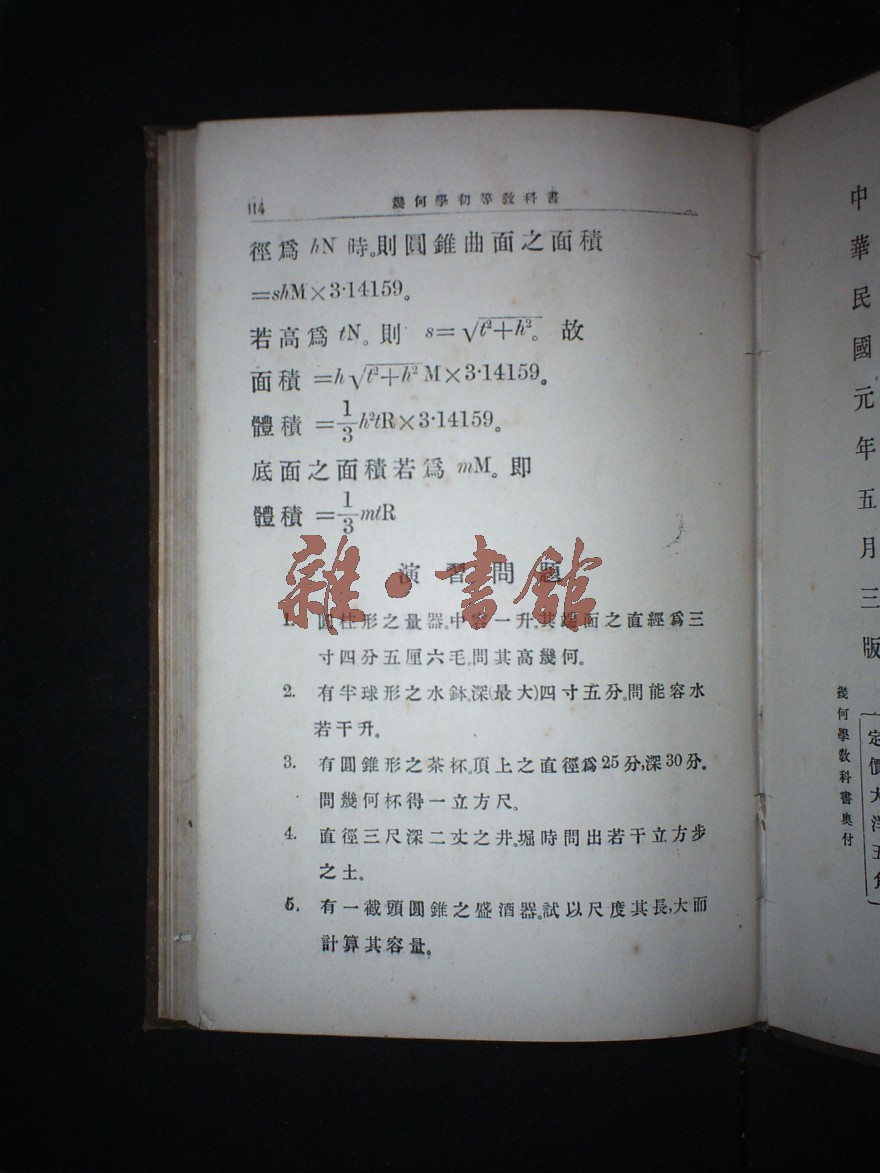 114 幾何學初等敎科書
徑爲 hN 時。則圓錐曲面之面積
=shM×3·14159。
若高爲 tN。則 s=√t²+h²。 故
面積 =h√t²+h² M×3·14159。
體積 =1/3 h²tR×3·14159。
底面之面積若爲 mM。卽
體積 =1/3 mtR
演習問題
雜·書館
1. 圓柱形之量器。中容一升。其端面之直經爲三
寸四分五厘六毛。問其高幾何。
2. 有半球形之水鉢。深(最大)四寸五分。問能容水
若干升。
3. 有圓錐形之茶杯。頂上之直徑爲25分,深30分。
問幾何杯得一立方尺。
4. 直徑三尺深二丈之井。堀時問出若干立方步
之土。
5. 有一截頭圓錐之盛酒器。試以尺度其長,大而
計算其容量。
中華民國元年五月三版
幾何學敎科書奥付
定價大洋五角